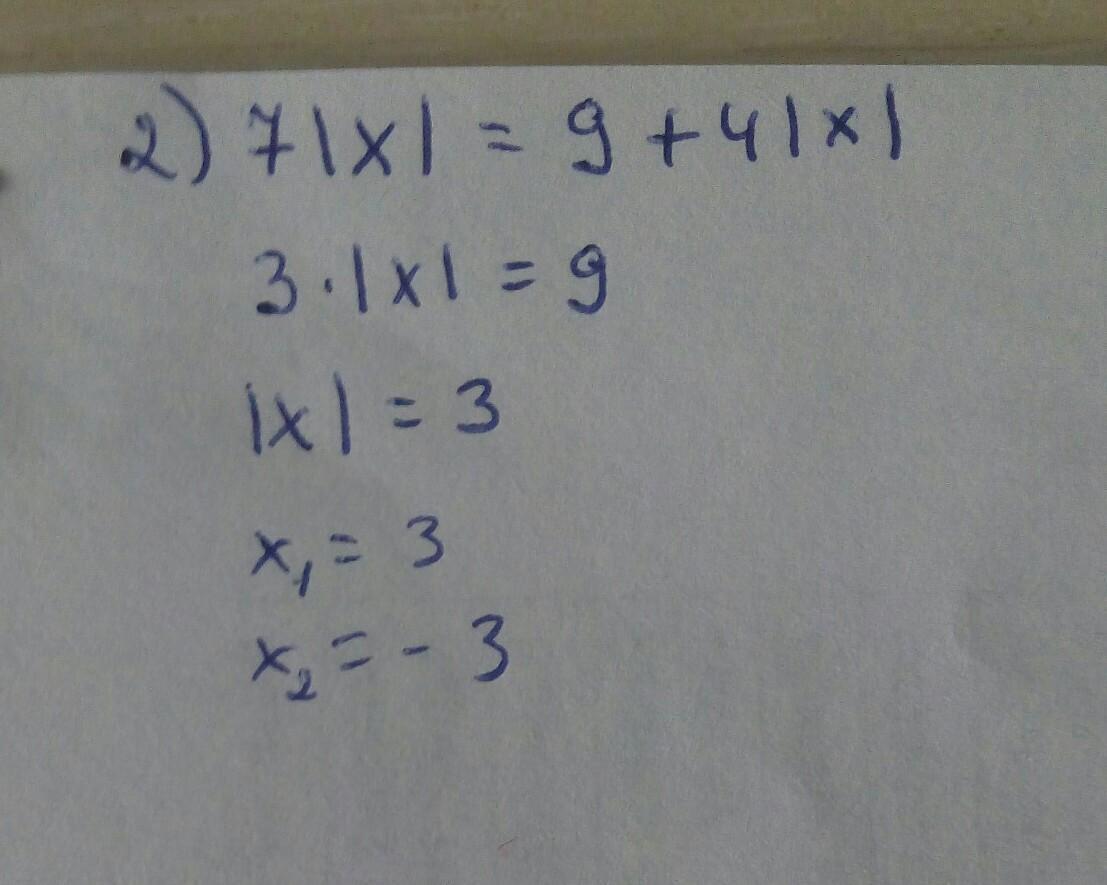 2) 7|x| = 9 + 4|x|
3·|x| = 9
|x| = 3
x₁ = 3
x₂ = - 3